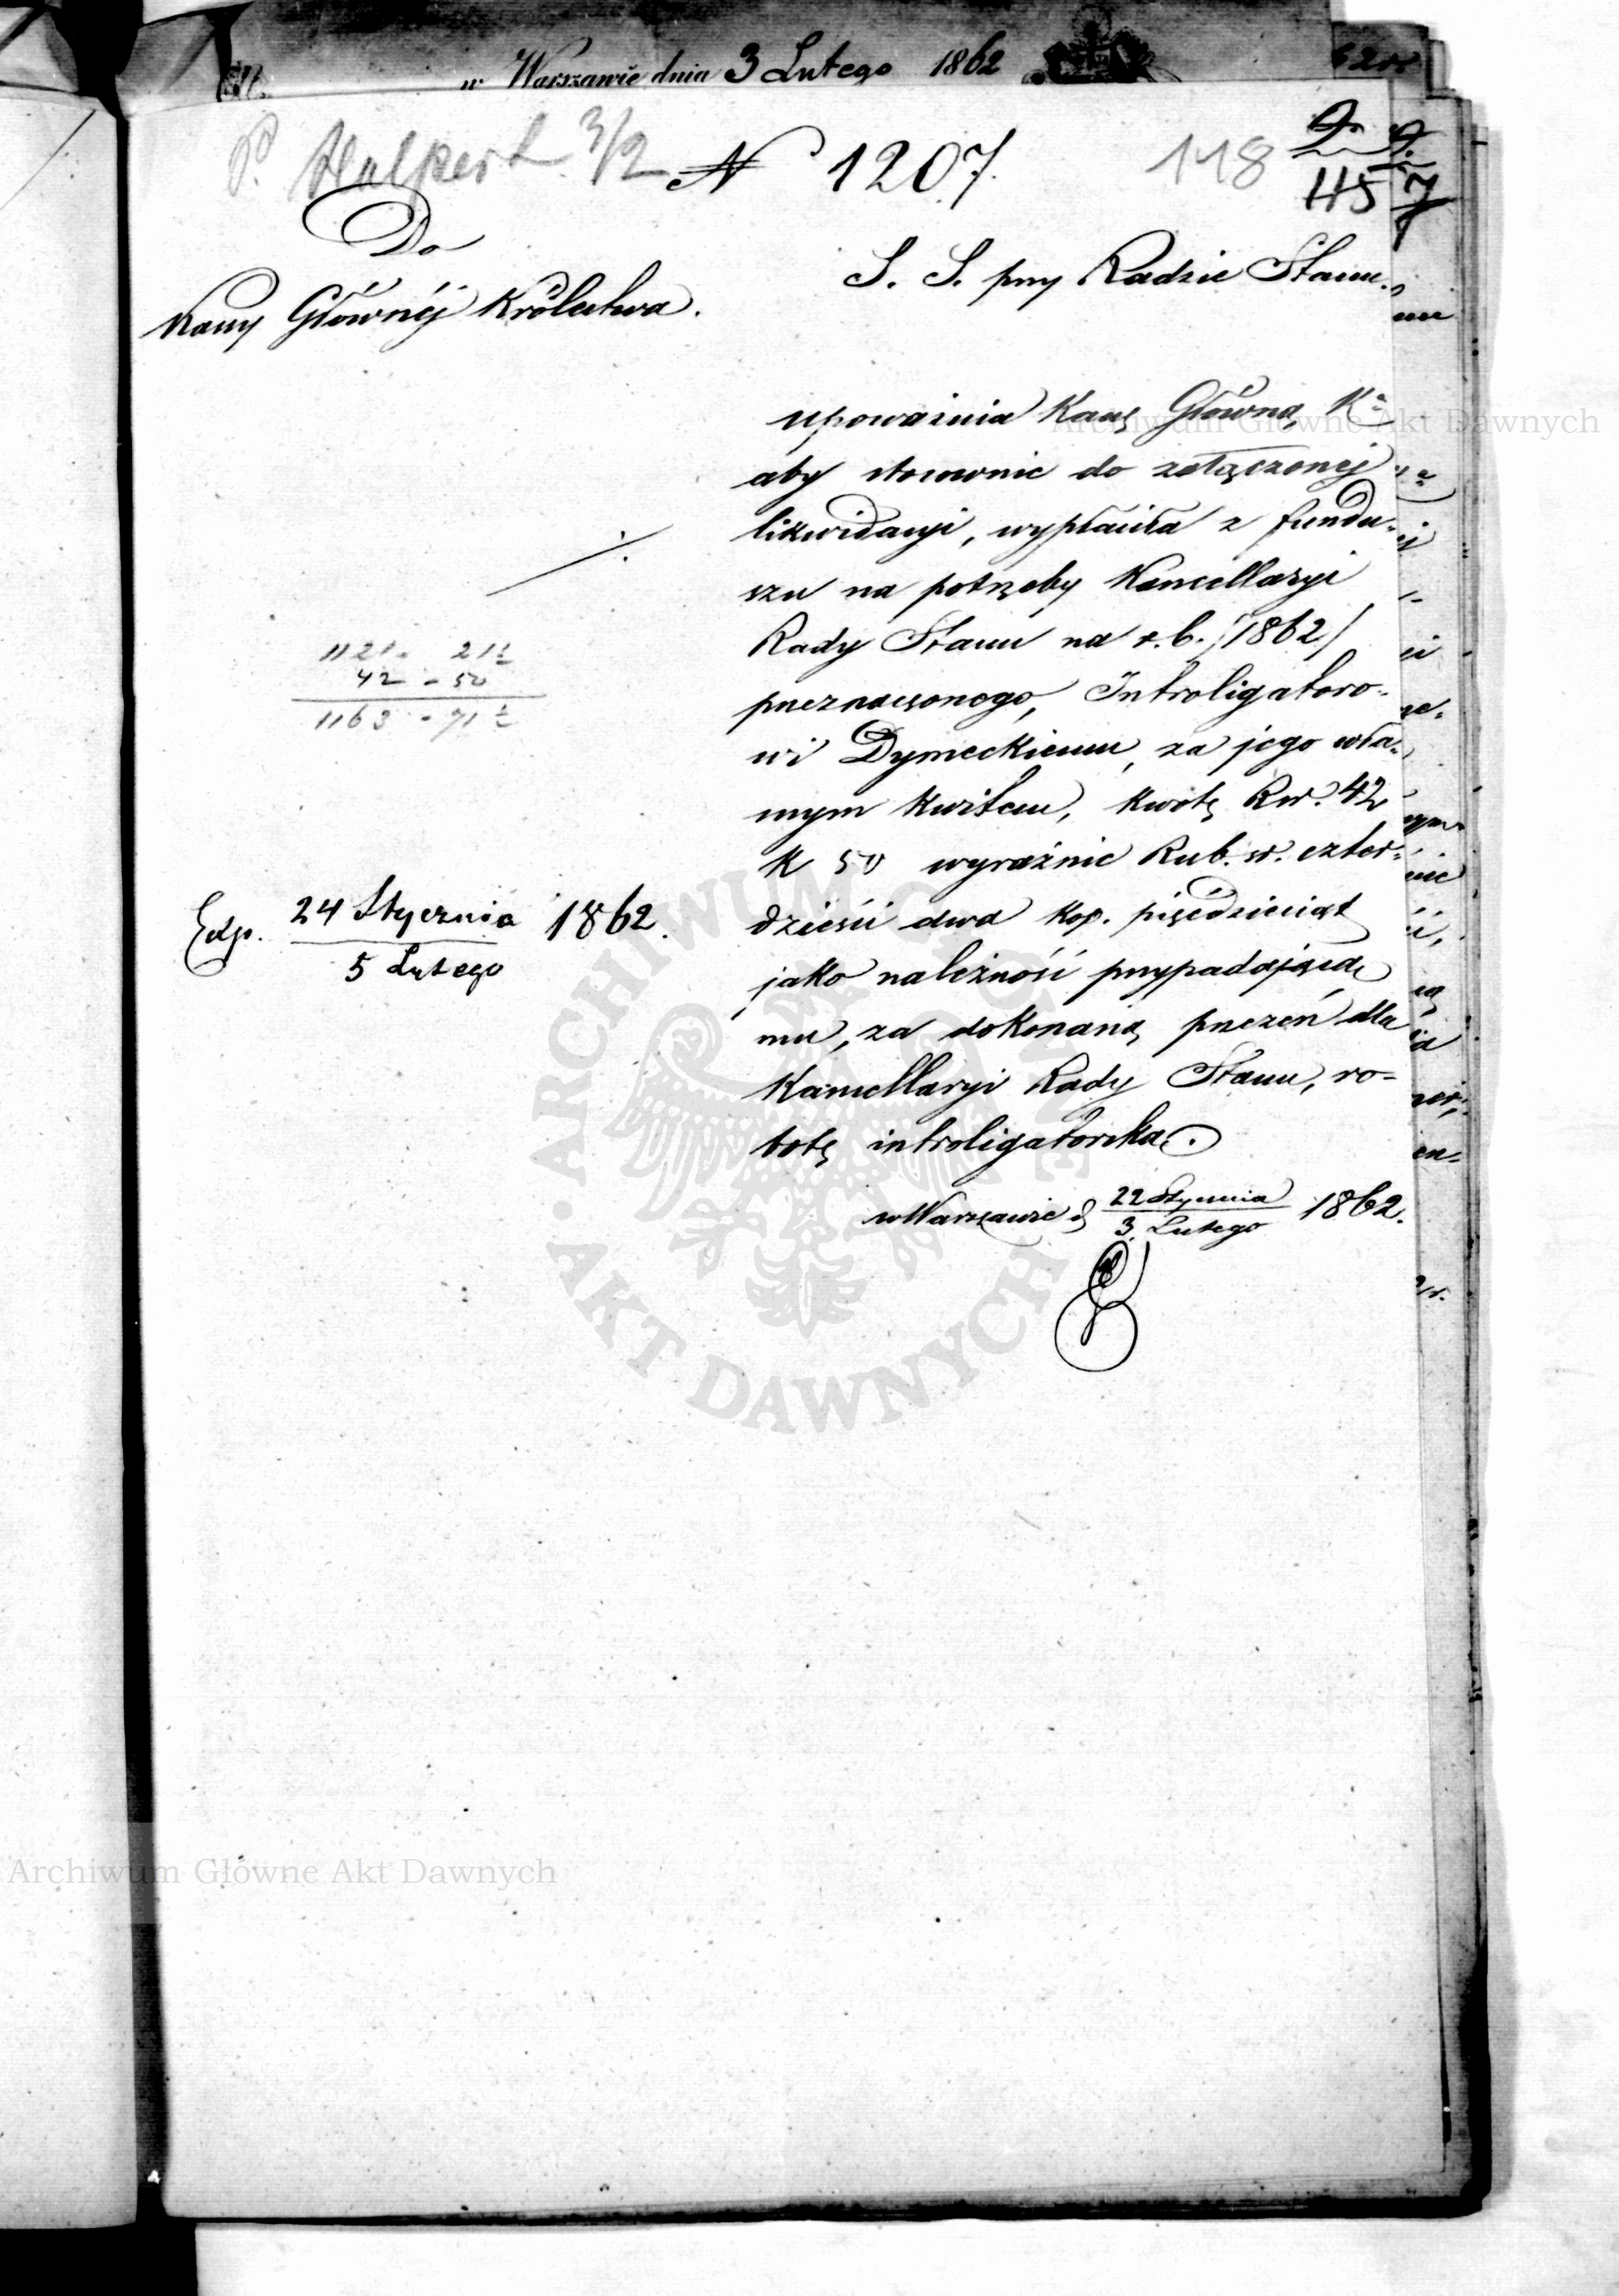 w Warszawie dnia 3 Lutego 1862
P. Halpert 3/2 N 1207.
118
115
Do
Kassy Głównéj Królestwa.
S. S. przy Radzie Stanu.
upoważnia Kassę Główną K
aby stosownie do załączonej
likwidacyi, wypłaciła z fundu-
szu na potrzeby Kancellaryi
Rady Stanu na r.b. /1862/
przeznaczonego, Introligatoro-
wi Dymeckiemu, za jego wła-
snym kwitem, kwotę Rsr. 42
k 50 wyraźnie Rub. sr. czter-
dzieści dwa kop. pięćdziesiąt
jako należność przypadającą
mu, za dokonaną przezeń dla
Kancellaryi Rady Stanu, ro-
botę introligatorską.
w Warszawie d 22 Stycznia / 3 Lutego 1862.
1121 - 21½
42 - 50
1163 - 71½
Exp. 24 Stycznia / 5 Lutego 1862.
Archiwum Główne Akt Dawnych
ARCHIWUM GŁÓWNE AKT DAWNYCH
Archiwum Główne Akt Dawnych